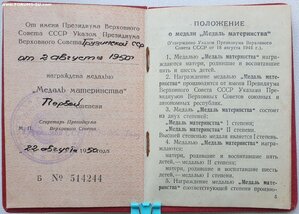 От имени Президиума Верховного
Совета СССР Указом Президиума
Верховного Совета Грузинской ССР
от 2 августа 1950 г.
награждена медалью
„Медаль материнства“
Первой
степени
Секретарь Президиума
Верховного Совета
22 августа 1950 года
Б № 514244
ПОЛОЖЕНИЕ
о медали „Медаль материнства“
(Утверждено Указом Президиума Верховного
Совета СССР от 18 августа 1944 г.)
1. Медалью „Медаль материнства“
награждаются матери, родившие и воспитавшие
пять и шесть детей.
2. Награждение медалью „Медаль материнства“
производится от имени Президиума Верховного
Совета СССР указами Президиумов
Верховных Советов союзных и автономных
республик.
3. „Медаль материнства“ состоит
из двух степеней:
„Медаль материнства“ I степени,
„Медаль материнства“ II степени.
Высшей степенью медали является I степень.
4. Награждаются:
матери, родившие и воспитавшие
пять детей, — медалью II степени;
матери, родившие и воспитавшие
шесть детей, — медалью I степени.
5. Награждение медалью „Медаль материнства“
соответствующей степени производится
4